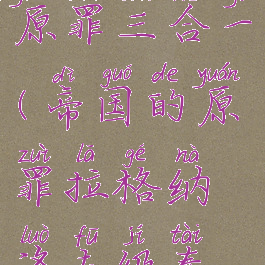 原罪三合一
dì guó de yuán
(帝国的原
zuì lā gé nà
罪拉格纳
luò fū jí tài